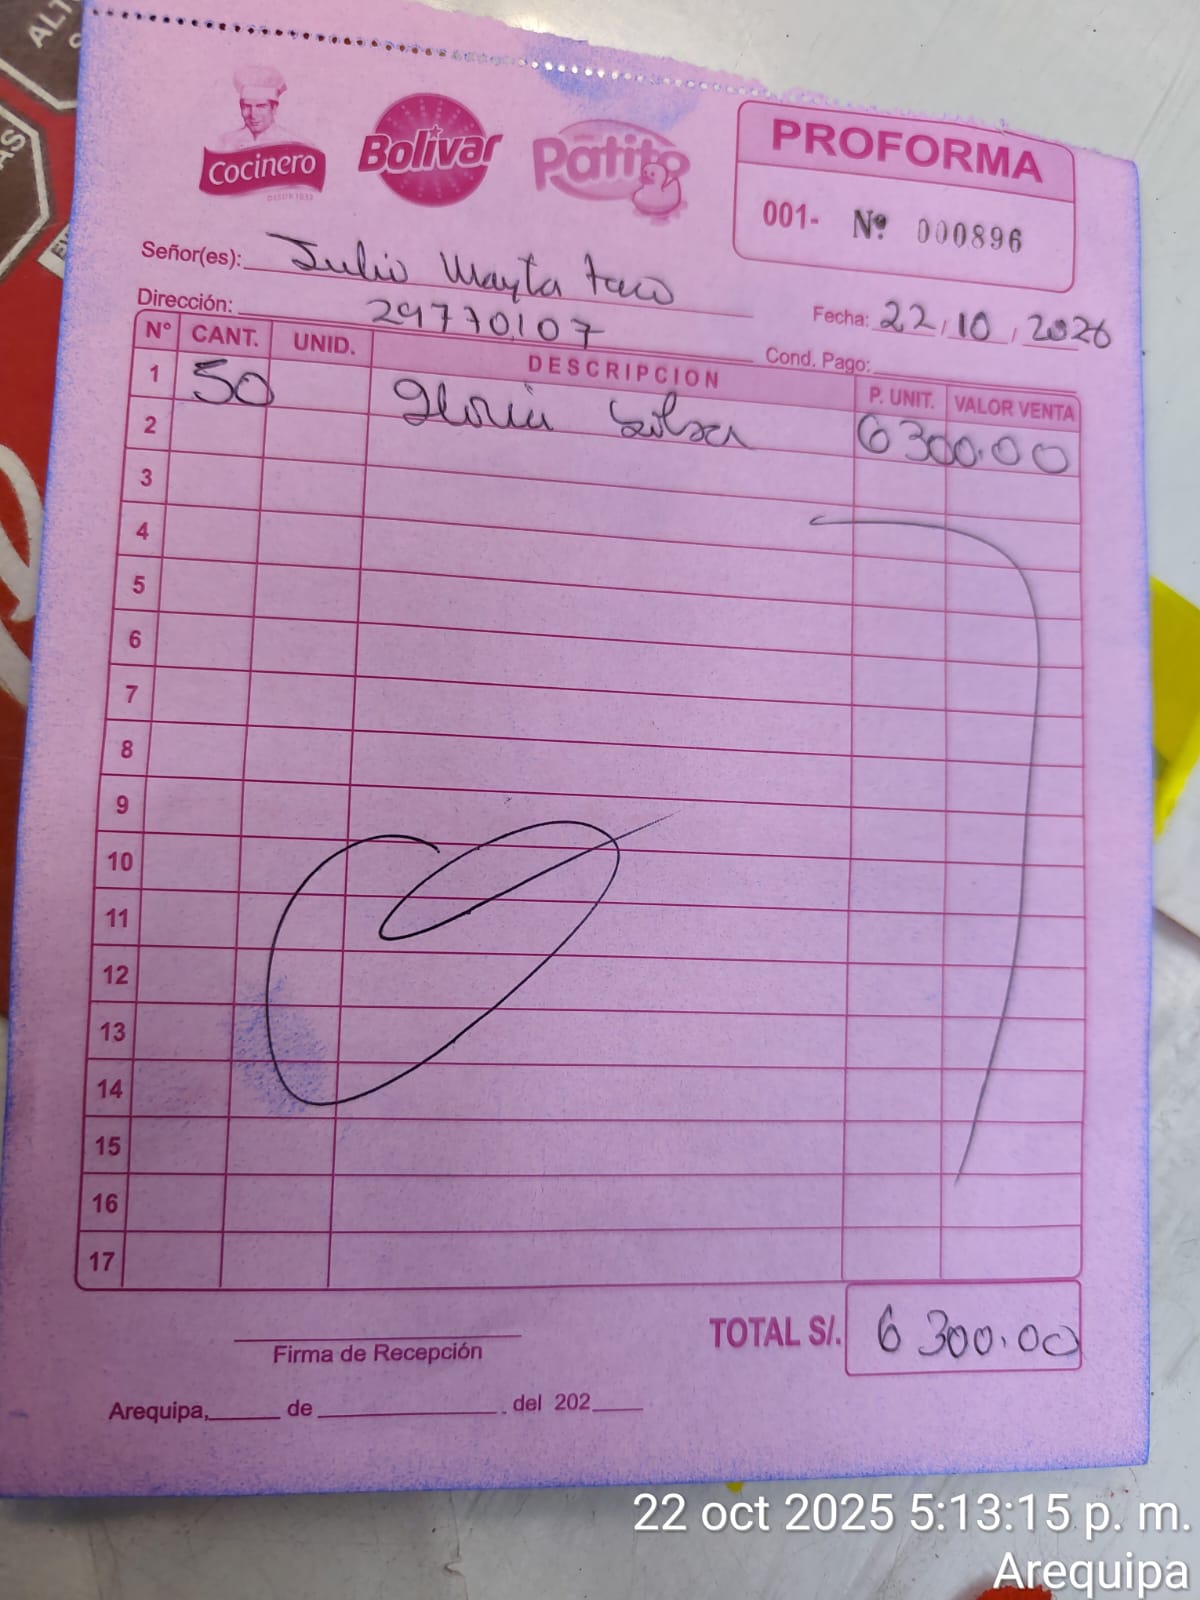 ALT
AS
Cocinero
DESDE 1932
Bolívar
Patito
PROFORMA
001- Nº 000896
Señor(es): Julio Mayta Taco
Dirección: 29770107
Fecha: 22/10/2026
Cond. Pago:
N° CANT. UNID. DESCRIPCION P. UNIT. VALOR VENTA
1 50 Gloria 6300.00
2
3
4
5
6
7
8
9
10
11
12
13
14
15
16
17
TOTAL S/. 6300.00
Firma de Recepción
Arequipa, de del 202
22 oct 2025 5:13:15 p. m.
Arequipa